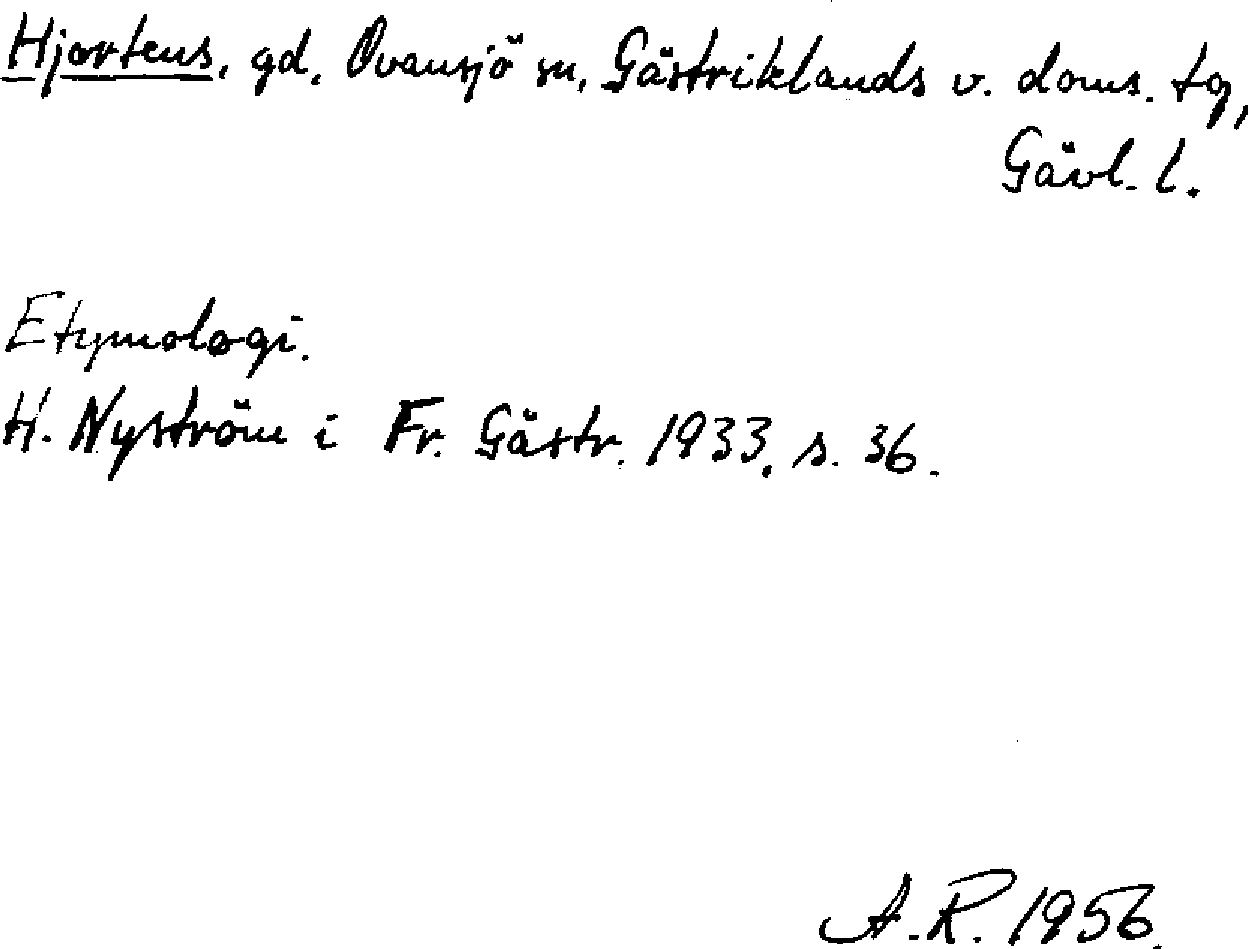 Hjortens, gd, Ovansjö sn, Gästriklands v. doms. tg,
Gävl. l.
Etymologi.
H. Nyström i Fr. Gästr. 1933, s. 36.
A.R. 1956.